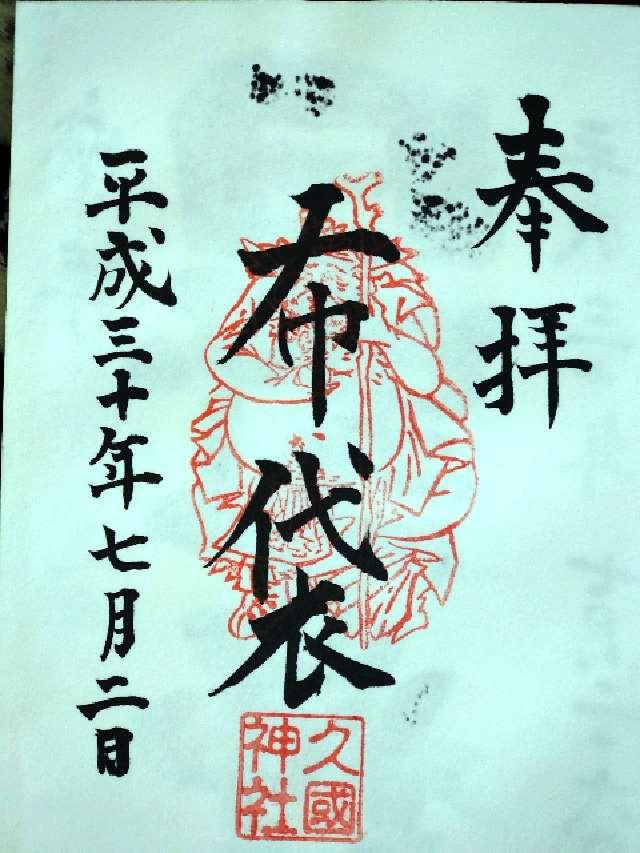 奉拝
布袋
平成三十年七月二日
久國
神社